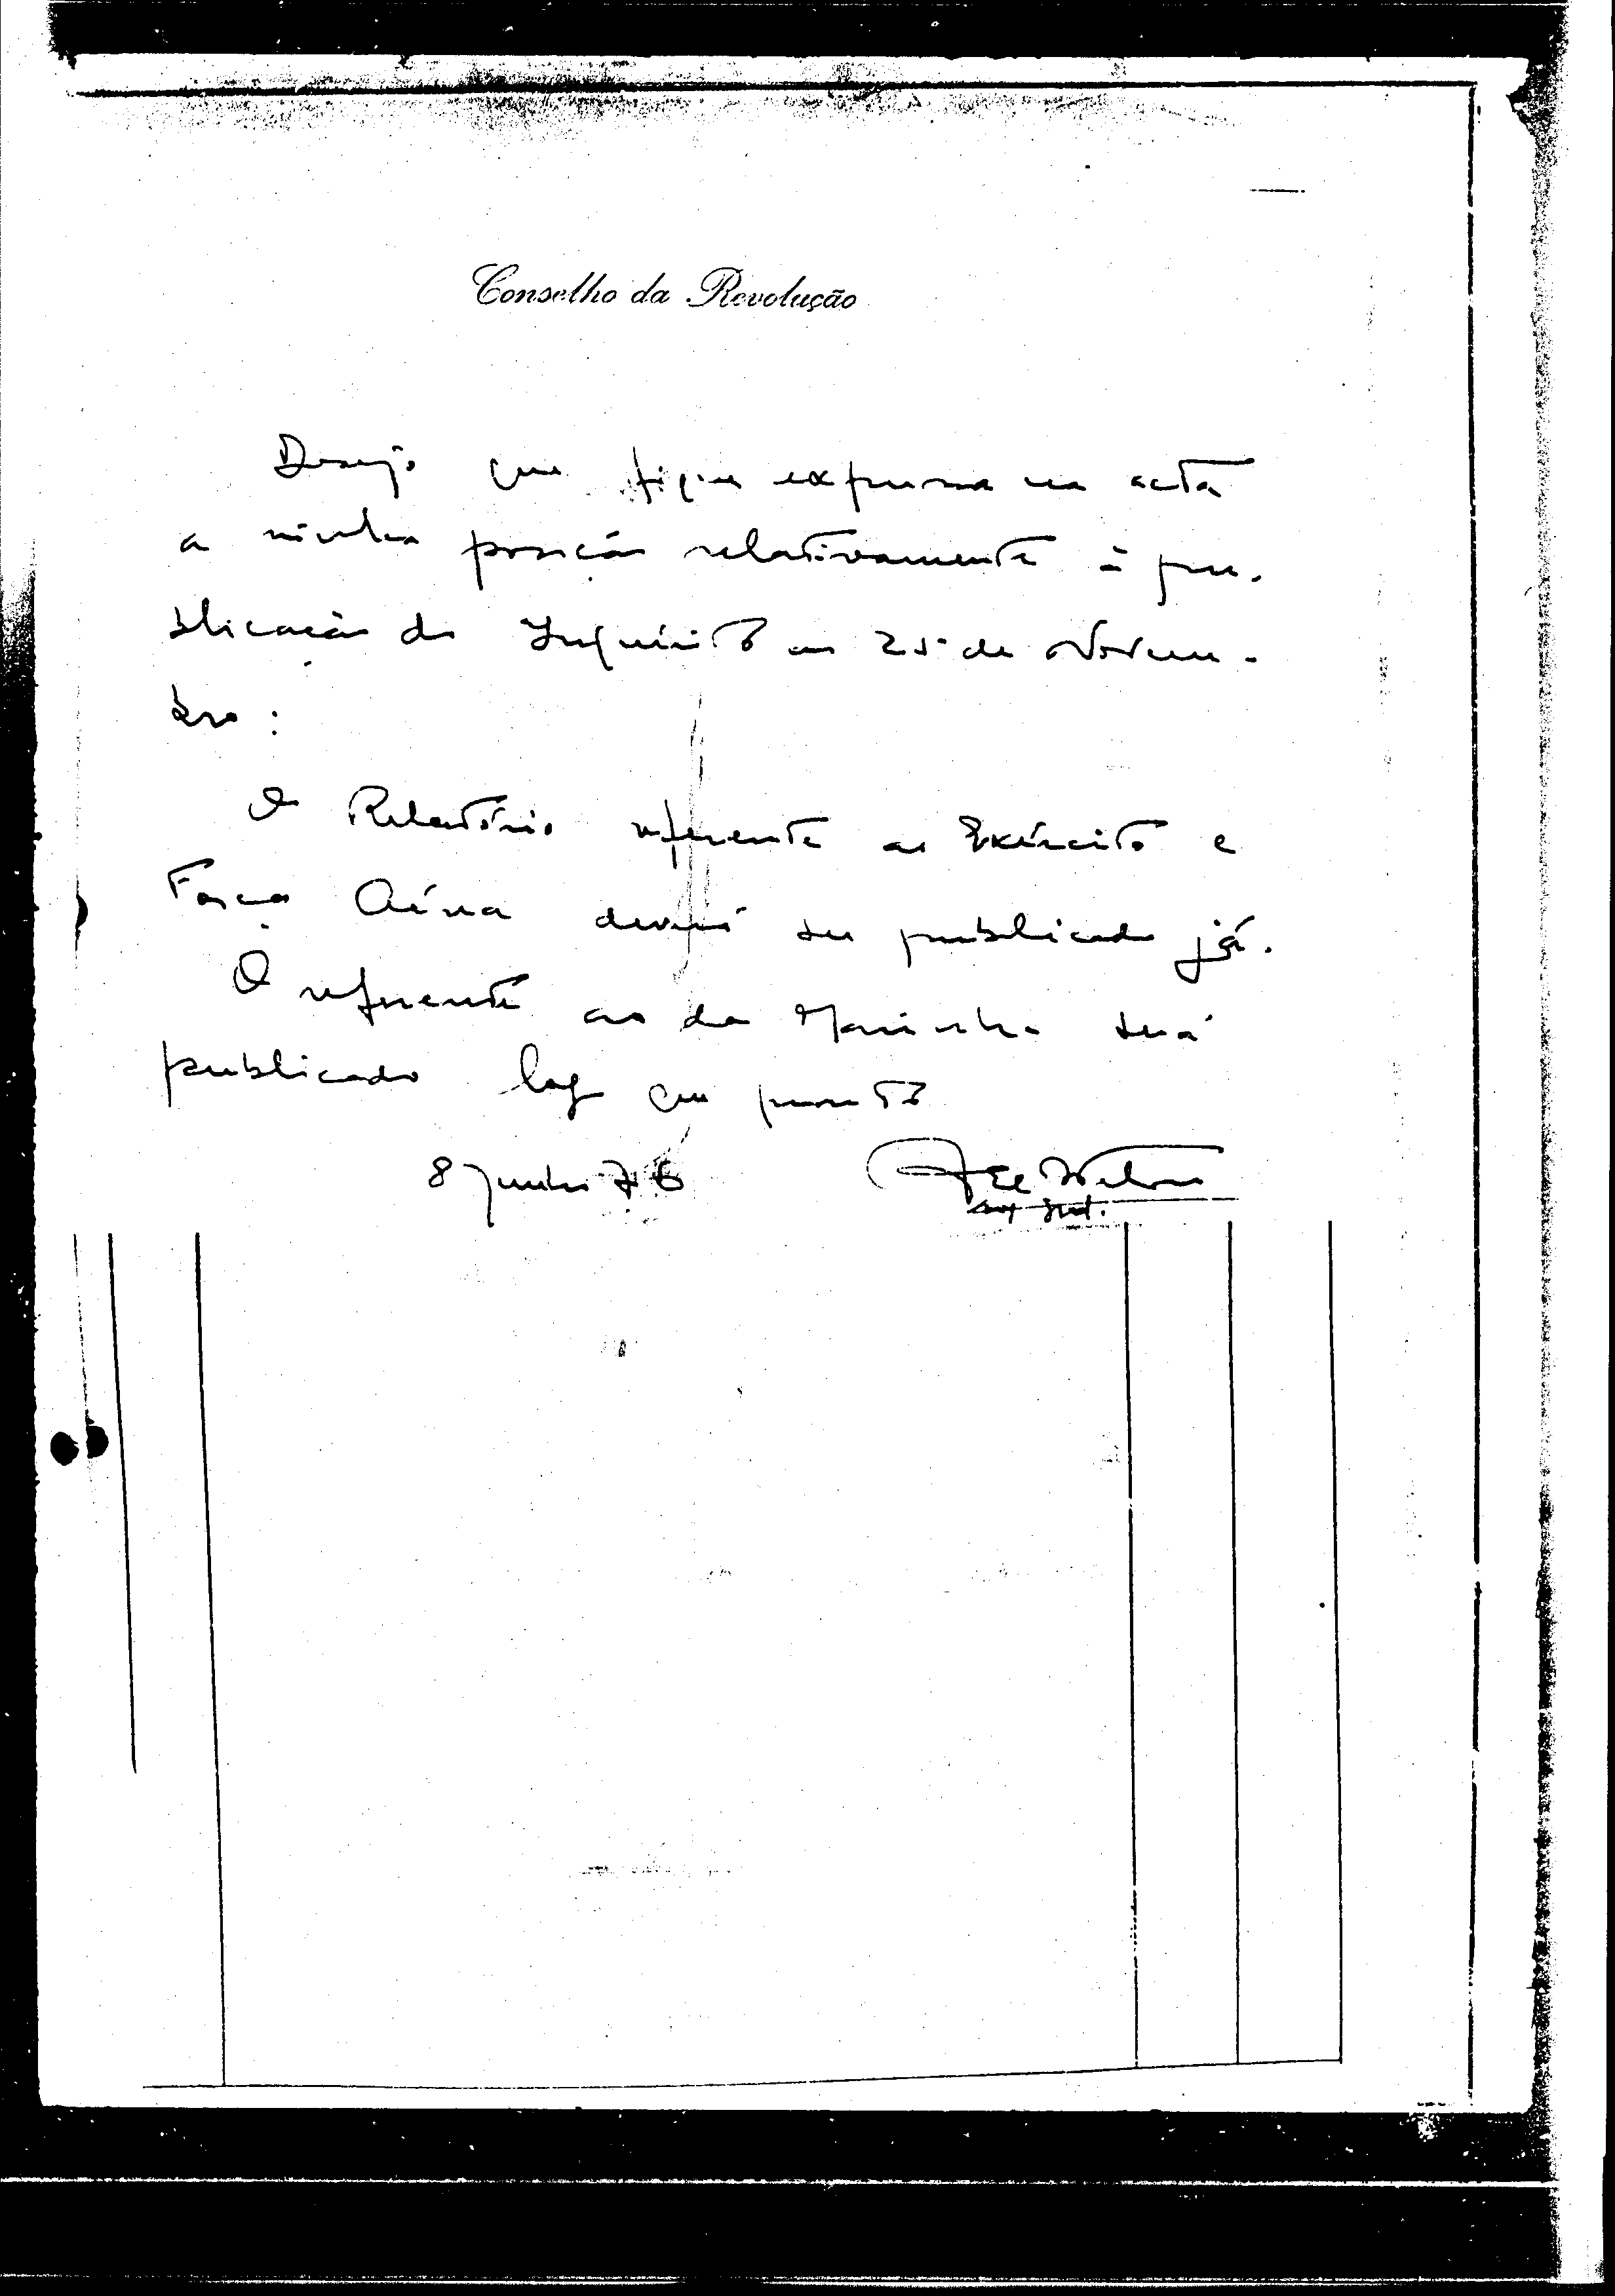 Conselho da Revolução
Desejo que fique expressa na acta
a minha posição relativamente à pu-
blicação do Inquérito ao 25 de Novem-
bro :
O Relatório referente ao Exército e
Força Aérea deverá ser publicado já.
O referente ao da Marinha será
publicado logo que pronto
8 Junho 76